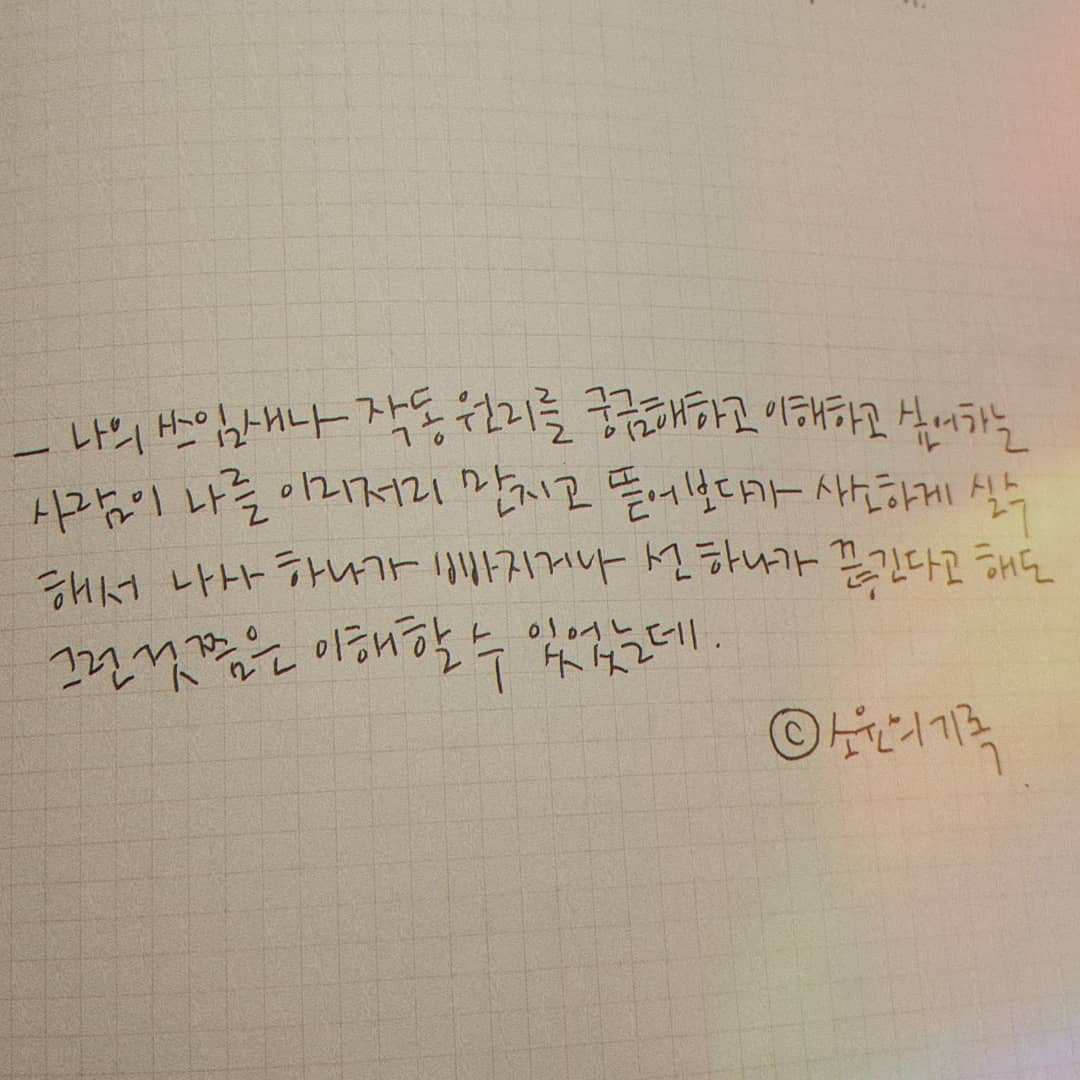 - 나의 쓰임새나 작동 원리를 궁금해하고 이해하고 싶어하는
사람이 나를 이리저리 만지고 뜯어보다가 사소하게 실수
해서 나사 하나가 빠지거나 선 하나가 끊긴다고 해도
그런 것쯤은 이해할 수 있었는데.
ⓒ소원의기록